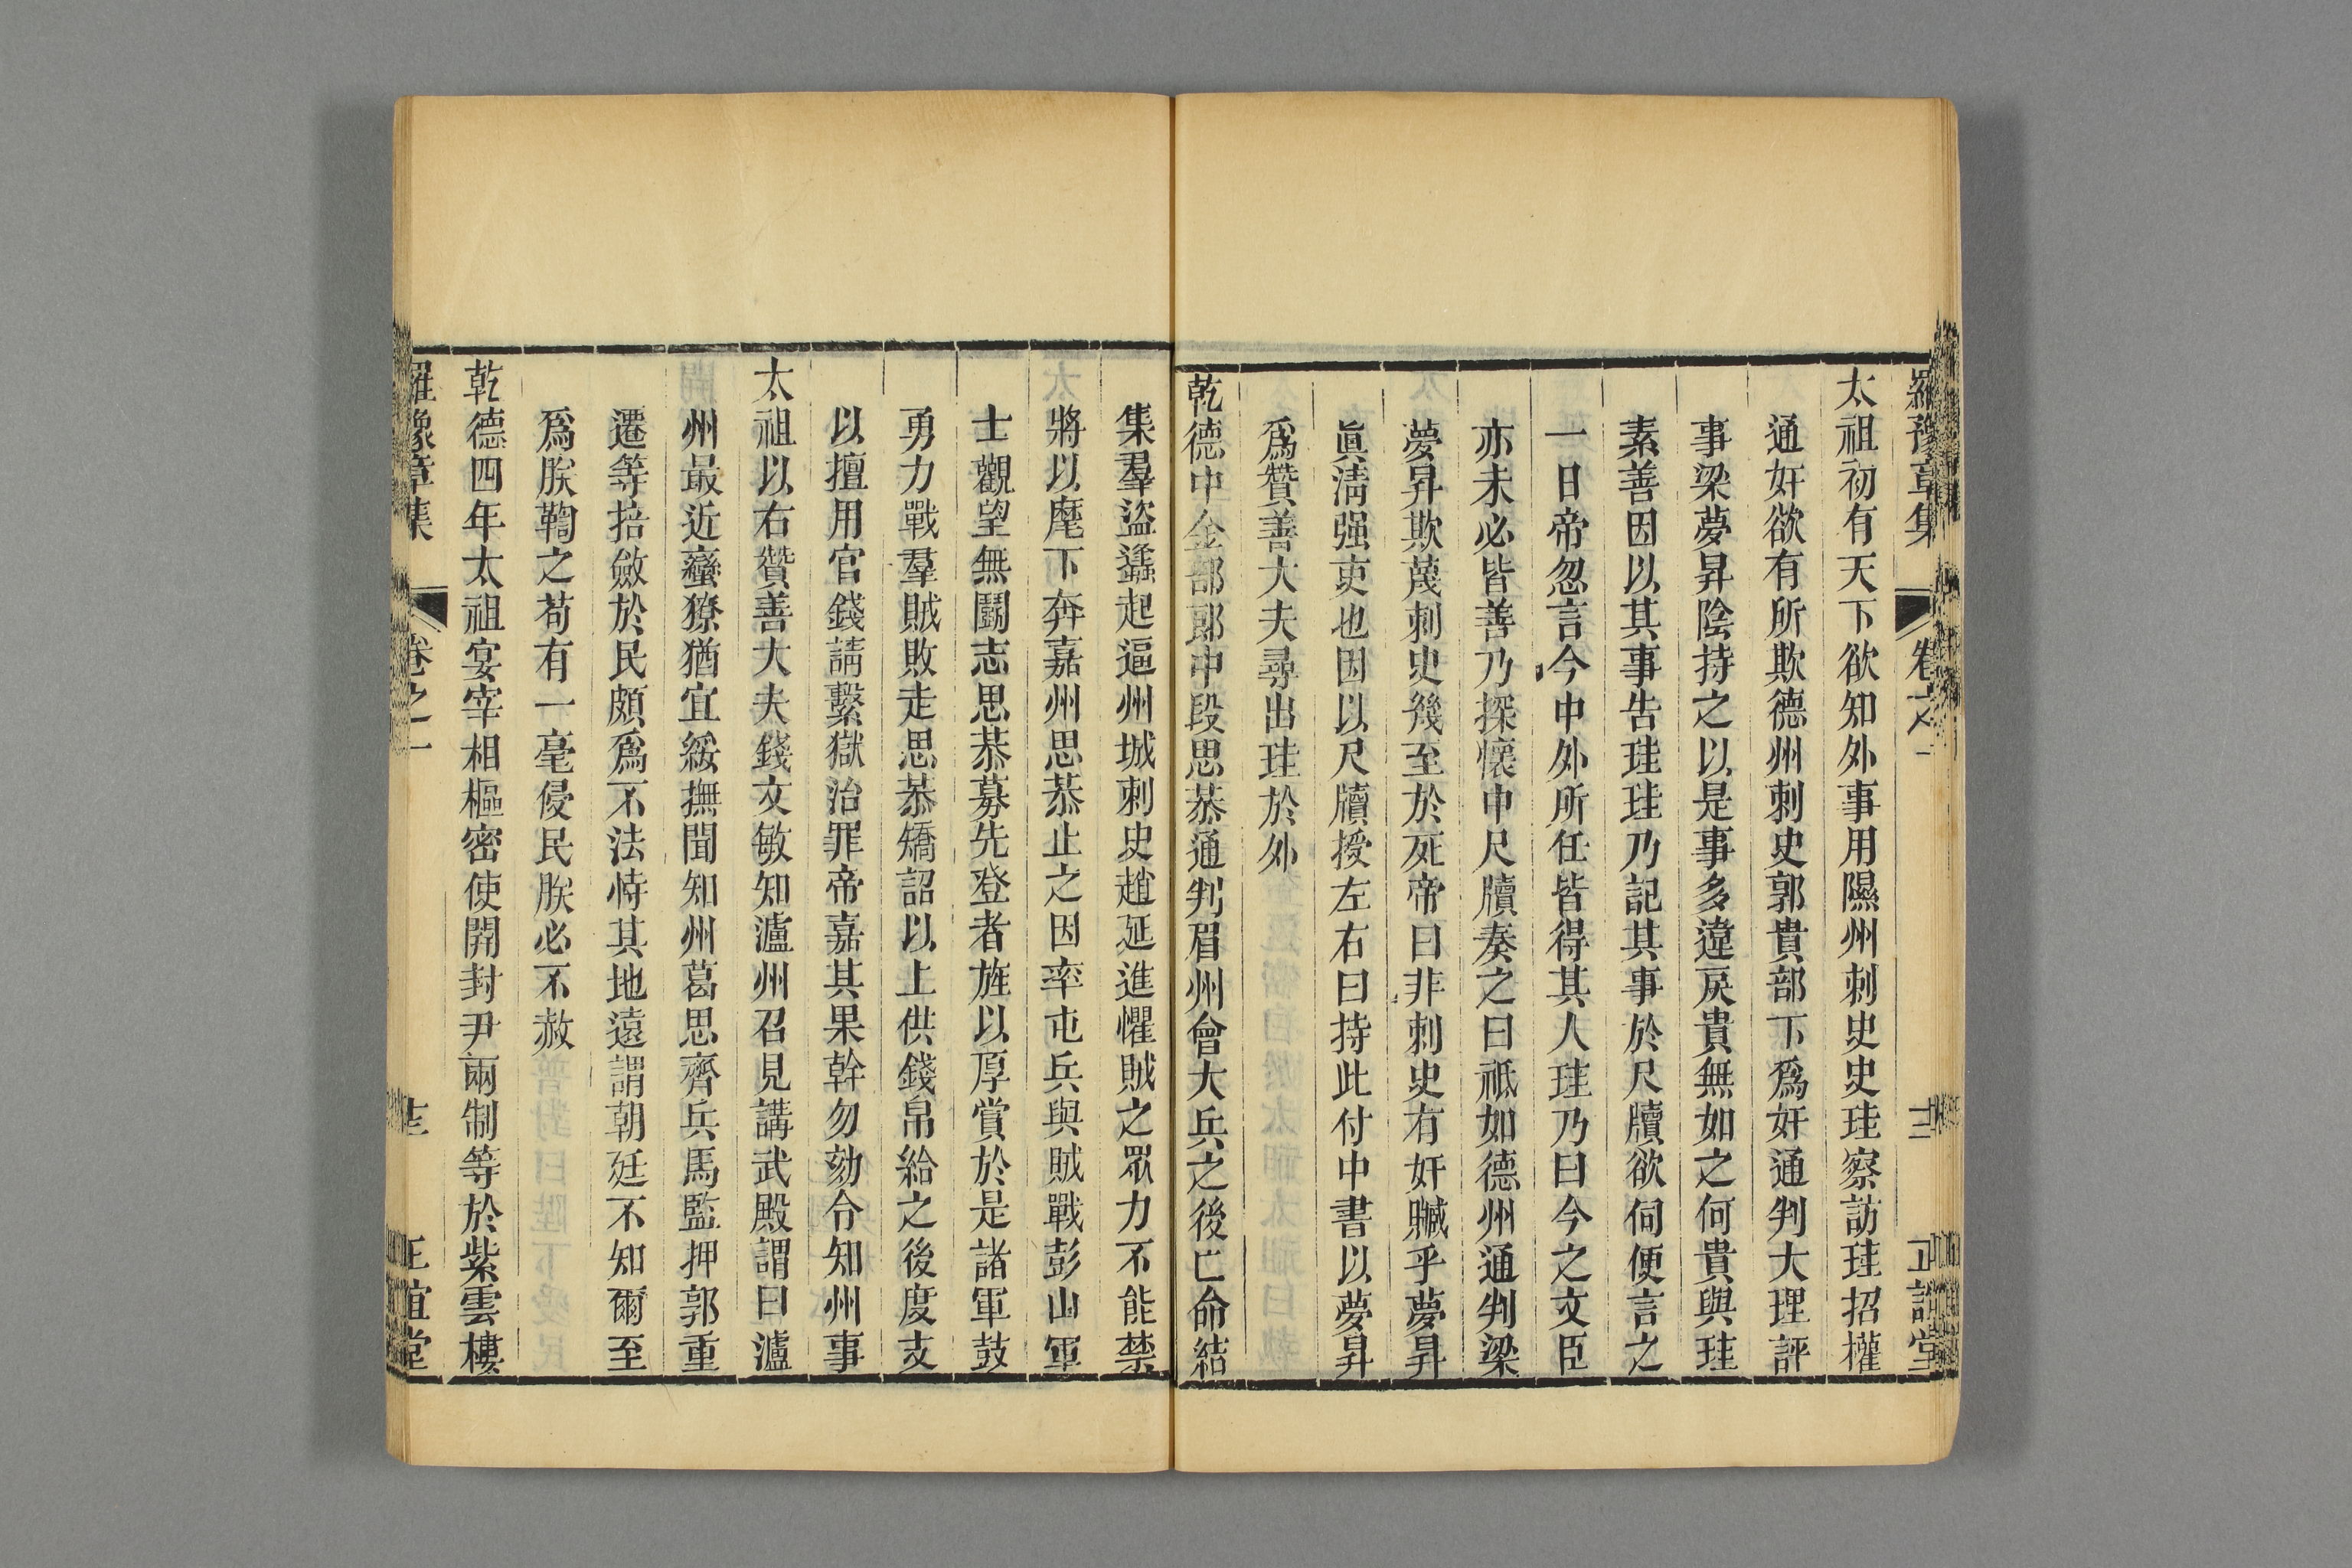 羅豫章集 卷之一 十二 正誼堂
太祖初有天下欲知外事用隰州刺史史珪察訪珪招權
通奸欲有所欺德州刺史郭貴部下爲奸通判大理評
事梁夢昇陰持之以是事多違戾貴無如之何貴與珪
素善因以其事告珪珪乃記其事於尺牘欲伺便言之
一日帝忽言今中外所任皆得其人珪乃曰今之文臣
亦未必皆善乃探懷中尺牘奏之曰祗如德州通判梁
夢昇欺蔑刺史幾至於死帝曰非刺史有奸贓乎夢昇
眞淸强吏也因以尺牘授左右曰持此付中書以夢昇
爲贊善大夫尋出珪於外
乾德中金部郎中段思恭通判眉州會大兵之後亡命結
集羣盜蠭起逼州城刺史趙延進懼賊之眾力不能禁
將以麾下奔嘉州思恭止之因率屯兵與賊戰彭山軍
士觀望無鬭志思恭募先登者旌以厚賞於是諸軍鼓
勇力戰羣賊敗走思恭矯詔以上供錢帛給之後度支
以擅用官錢請繫獄治罪帝嘉其果幹勿劾令知州事
太祖以右贊善大夫錢文敏知瀘州召見講武殿謂曰瀘
州最近蠻獠猶宜綏撫聞知州葛思齊兵馬監押郭重
遷等掊斂於民頗爲不法恃其地遠謂朝廷不知爾至
爲朕鞫之苟有一毫侵民朕必不赦
乾德四年太祖宴宰相樞密使開封尹兩制等於紫雲樓
羅豫章集 卷之一 正誼堂